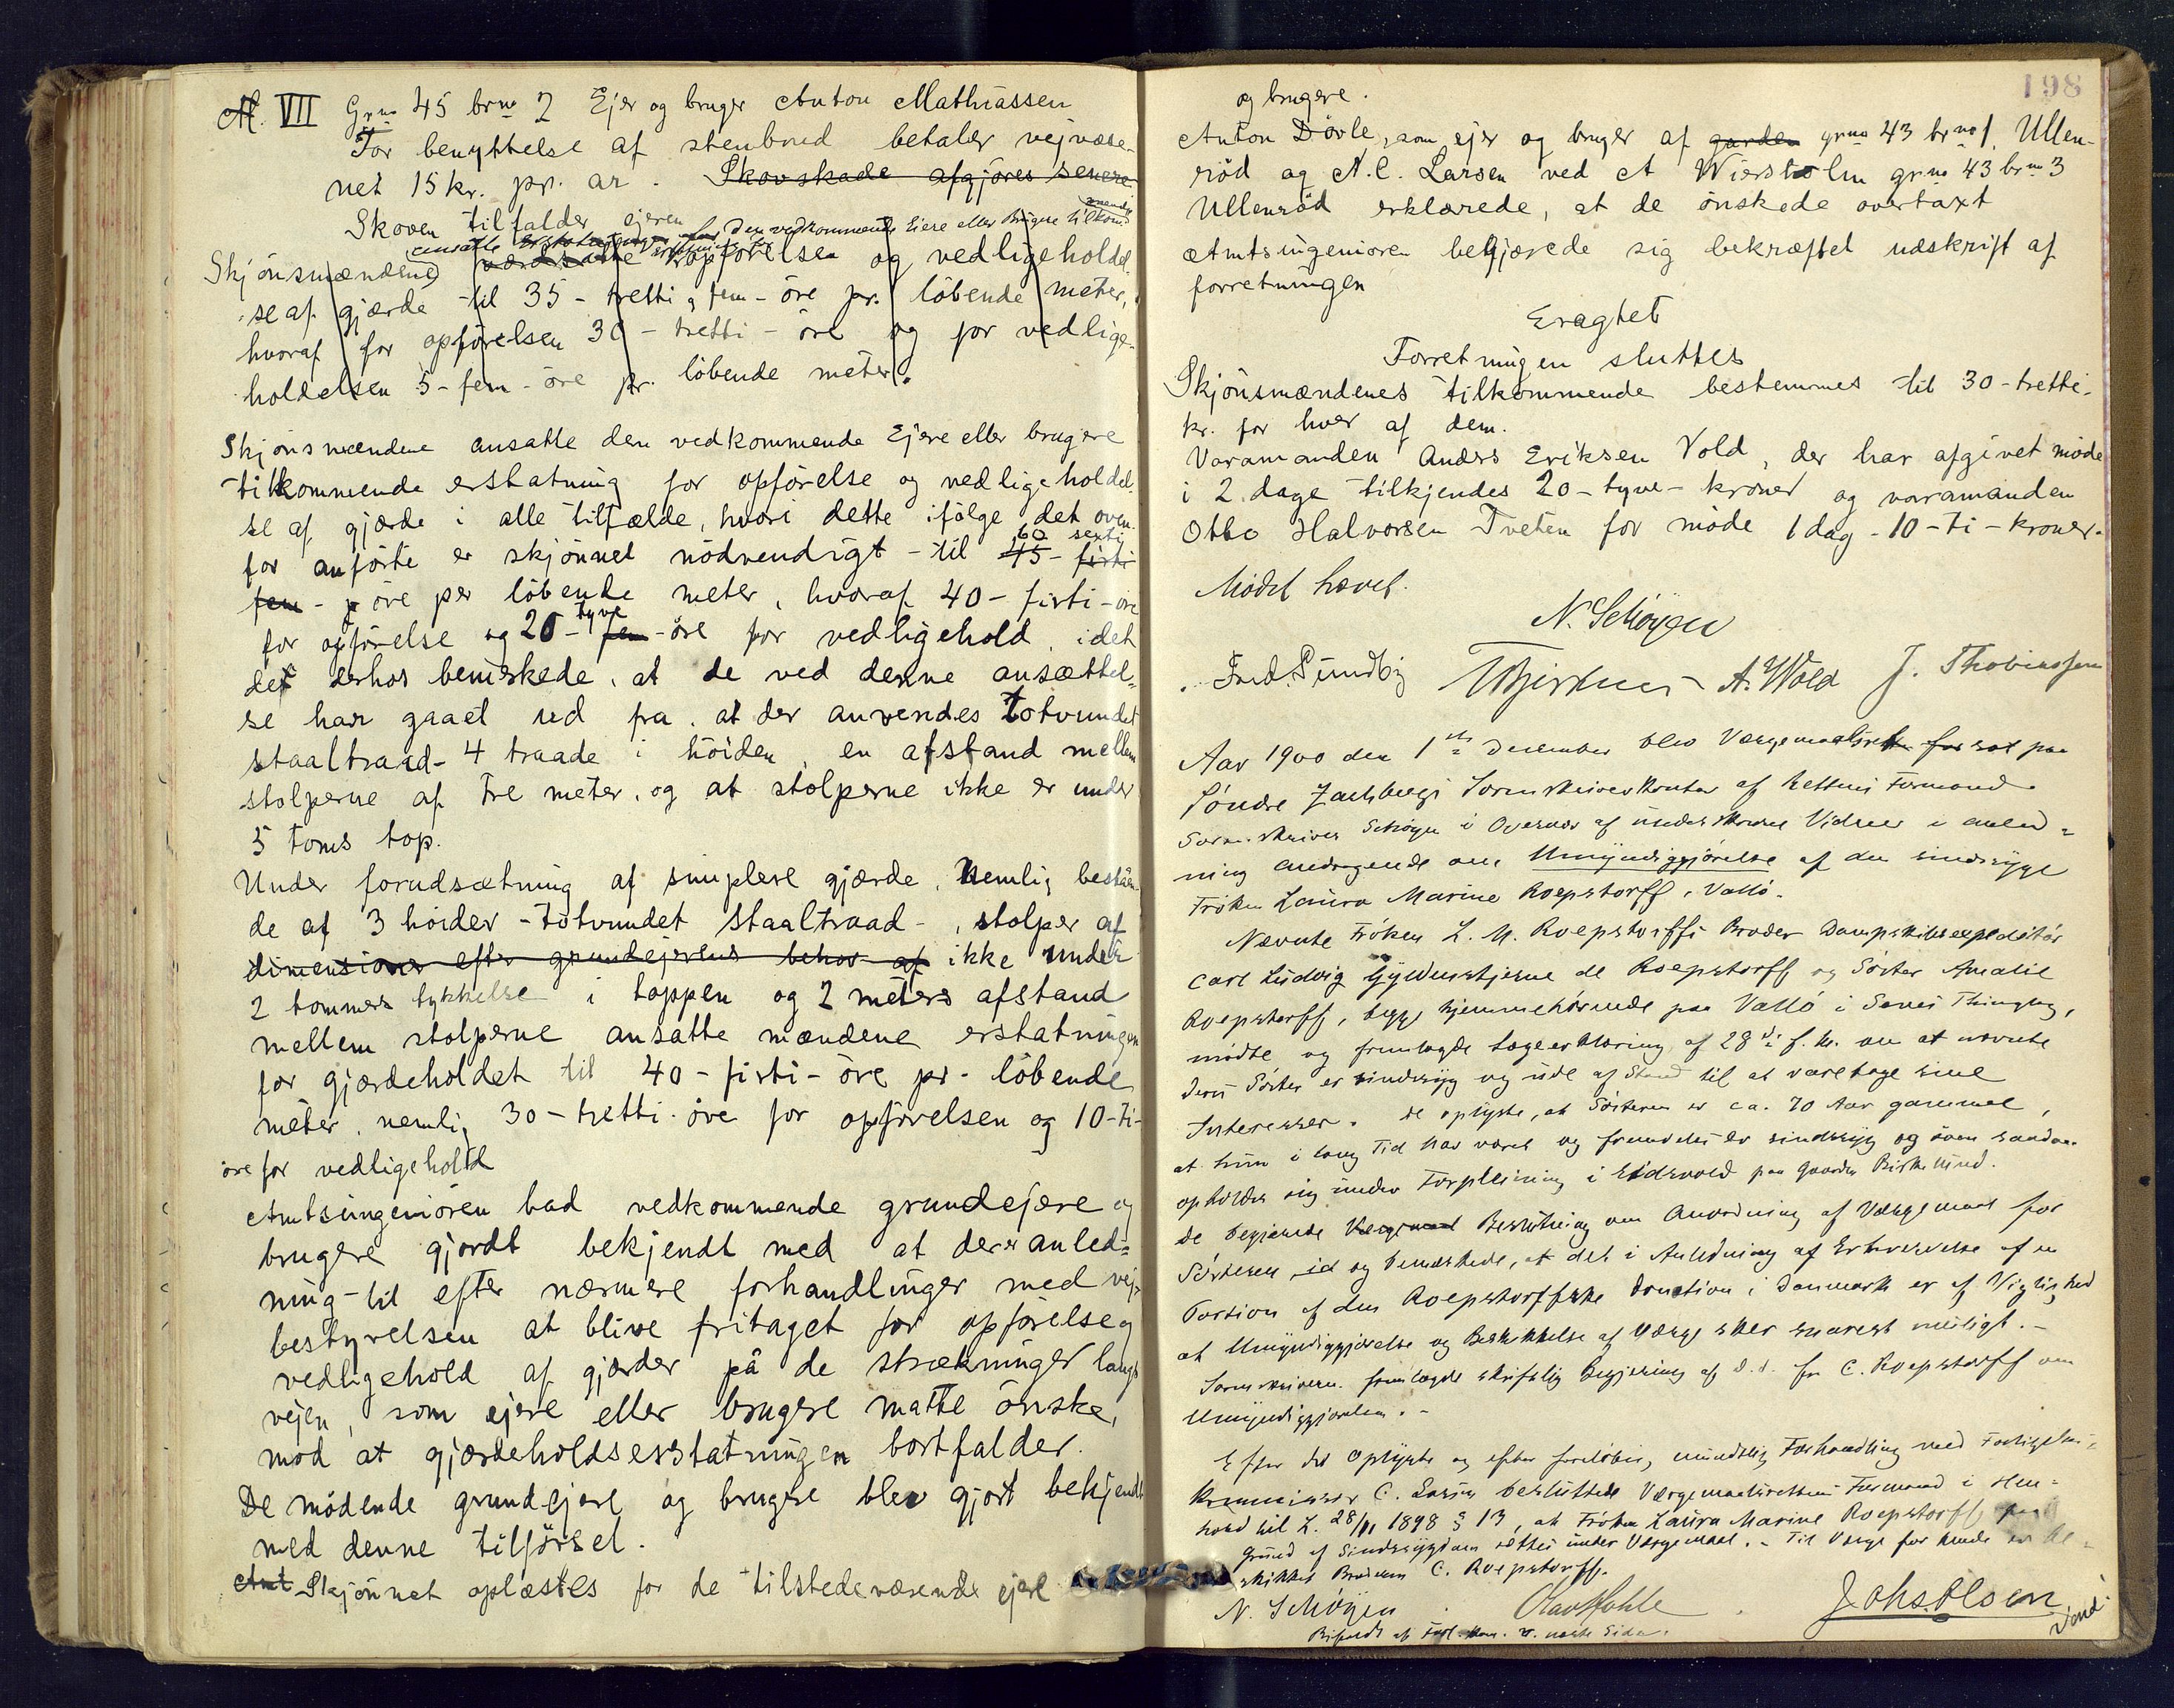 A. VII Grno 45 brno 2 Ejer og bruger Anton Mathiassen
For benyttelse af stenbrud betaler vejvæse-
net 15 kr. pr. ar. Skovskade afgjöres senere
Skoven tilfalder ejeren
ansatte erstatningen for den vedkommende Eiere eller Brugere tilkom-
mende
Skjönsmændene værdsatte opförelsen og vedligeholdel-
se af gjærde til 35 - tretti og fem - öre pr. löbende meter,
hvoraf for opförelsen 30 - tretti - öre og for vedlige-
holdelsen 5 - fem - öre pr. löbende meter.
Skjönsmændene ansatte den vedkommende Ejere eller brugere
tilkommende erstatning for opförelse og vedligeholdel-
se af gjærde i alle tilfælde, hvori dette ifölge det oven-
60 sexti
for anförte er skjönnet nödvendigt - til 45 - firti
fem - öre per löbende meter, hvoraf 40 - firti - öre
tyve
for opförelse og 20 - fem - öre for vedligehold, idet
det derhos bemerkede, at de ved denne ansættel-
se har gaaet ud fra, at der anvendes totvundet
staaltraad - 4 traade i höiden, en afstand mellem
stolperne af tre meter, og at stolperne ikke er under
5 toms top.
Under forudsætning af simplere gjærde, nemlig bestaaen-
de af 3 höider - totvundet staaltraad -, stolper af
dimensioner efter grundejerens behov af ikke under
2 tommers tykkelse i toppen og 2 meters afstand
mellem stolperne ansatte mændene erstatningen
for gjærdeholdet til 40 - firti - öre pr. löbende
meter, nemlig 30 - tretti öre for opförelsen og 10 - ti -
öre for vedligehold
Amtsingeniören bad vedkommende grundejere og
brugere gjordt bekjendt med at der er anled-
ning til efter nærmere forhandlinger med vej-
bestyrelsen at blive fritaget for opförelse og
vedligehold af gjærder på de strækninger langs
vejen, som ejere eller brugere matte önske,
mod at gjærdeholdserstatningen bortfalder.
De mödende grundejere og brugere blev gjort bekjendt
med denne tilförsel.
Amt Skjönnet oplæstes for de tilstedeværende ejere
198
og brugere.
Anton Dövle, som ejer og bruger af garden grno 43 brno 1, Ullen-
röd og A. C. Larsen ved A Wiersholm grno 43 brno 3
Ullenröd erklærede, at de önskede overtaxt
Amtsingeniören begjærede sig bekræftet udskrift af
forretningen
Eragtet
Forretningen sluttes
Skjönsmændenes tilkommende bestemmes til 30 - tretti -
kr. for hver af dem.
Varamanden Anders Eriksen Vold, der har afgivet möde
i 2 dage tilkjendes 20 - tyve - kroner og varamanden
Otto Halvorsen Tveten for möde 1 dag - 10 - ti - kroner.
Mödet hævet.
N. Schöyen
Fred. Sundby A. Wold J. Thobiassen
Aar 1900 den 1ste December blev Værgemaalsretten sat paa
Söndre Jarlsbergs Sorenskriverkontor af Rettens Formand
Sorenskriver Schöyen i Overvær af underskrevne Vidner i anled-
ning andragende om Umyndiggjörelse af den sindssyge
Fröken Laura Marine Roepstorff, Vallö.
Nævnte Fröken L. M. Roepstorffs Broder Dampskibsexpeditör
Carl Ludvig Gyldenstjerne de Roepstorff og Söster Amalie
Roepstorff, begge hjemmehörende paa Vallö i Sems Thinglag,
mödte og fremlagde Lægeerklæring af 28de f. M. om at nævnte
deres Söster er sindssyg og ude af Stand til at varetage sine
Interesser. De oplyste, at Sösteren er ca. 70 Aar gammel,
at hun i lang Tid har været og fremdeles er sindssyg og som saadan
opholder sig under Forpleining i Eidsvold paa Gaarden Birkelund.
De begjærede Værgemaal Beslutning om Anordning af Værgemaal for
Sösteren id og bemærkede, at det i Anledning af Erhvervelse af en
Portion af den Roepstorffske Donation i Danmark er af Vigtighed
at Umyndiggjörelse og Beskikkelse af Værge sker snarest muligt.-
Sorenskriveren fremlagde skriftlig Begjæring af d.d. fra C. Roepstorff om
Umyndiggjörelsen.-
Efter det Oplyste og efter foretagen mundtlig Forhandling med Forligelses-
kommissær C. Larsen besluttede Værgemaalsrettens Formand i Hen-
hold til L. 28/11 1898 § 13, at Fröken Laura Marine Roepstorff paa
Grund af Sindssygdom sættes under Værgemaal.- Til Værge for hende er be-
skikket Broderen C. Roepstorff.
N. Schöyen Johs. Olsen
vend
næste Side.